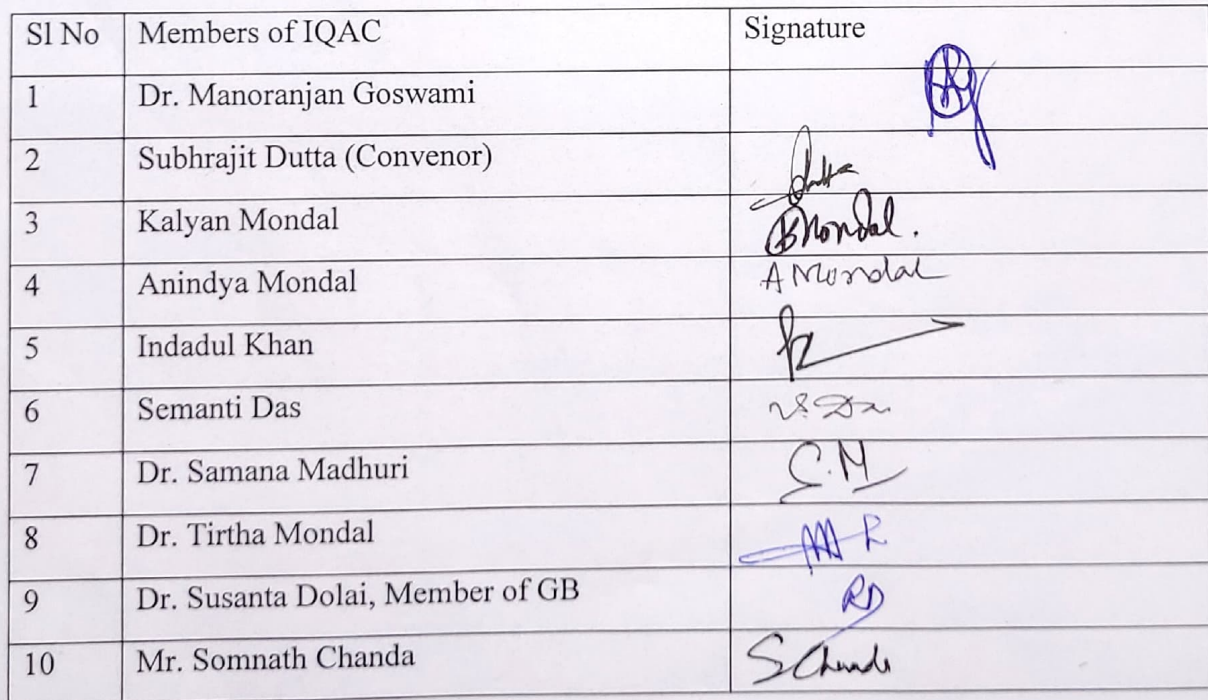 Sl No Members of IQAC Signature
1 Dr. Manoranjan Goswami
2 Subhrajit Dutta (Convenor) Dutta
3 Kalyan Mondal Mondal.
4 Anindya Mondal A Mondal
5 Indadul Khan
6 Semanti Das
7 Dr. Samana Madhuri S.M
8 Dr. Tirtha Mondal
9 Dr. Susanta Dolai, Member of GB
10 Mr. Somnath Chanda S Chanda